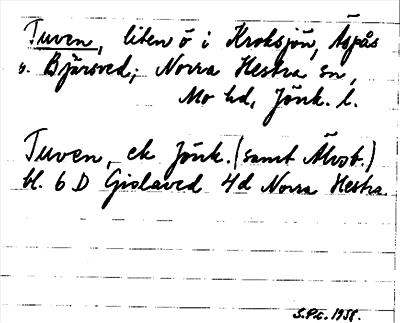 Tuven, liten ö i Kroksjön, Äspås
o. Bjärsved; Norra Hestra sn,
Mo hd, Jönk. l.
Tuven, ek Jönk. (samt Älvsb.)
bl. 6 D Gislaved 4d Norra Hestra.
1958.